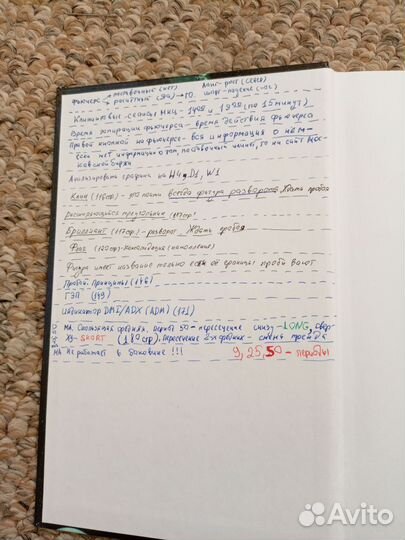 Фьючерс → поставочный (нет)
→ расчётный (да) → ГО.
Лонг- рост (север)
Шорт - падение (юг)
Клиринговые - сеансы МКЦ - 1400 и 1900 (по 15 минут)
Время экспирации фьючерса - время действия фьючерса
Правой кнопкой на фьючерс - вся информация о нём -
если нет информации о том, поставочный или нет, то на сайт Мос-
ковской биржи
Анализировать графики на H4, D1, W1
Клин (116стр) - это почти всегда фигура разворота. Ждать пробоя
Расширяющийся треугольник (117стр)
Бриллиант (117стр) - разворот. Ждать пробоя
Флаг (120стр) - Консолидация (накопления)
Фигура имеет название только если её границы пробивают
Пробой. Принципы (146)
ГЭП (149)
Индикатор DMI/ADX (ADM) (171)
MA. Скользящая средняя, период 50 - пересечение снизу - LONG, свер-
ху- SHORT (180стр). Пересечение 2-х средних - смена тренда
MA не работает в боковике !!!
9, 25, 50 - периоды
Avito